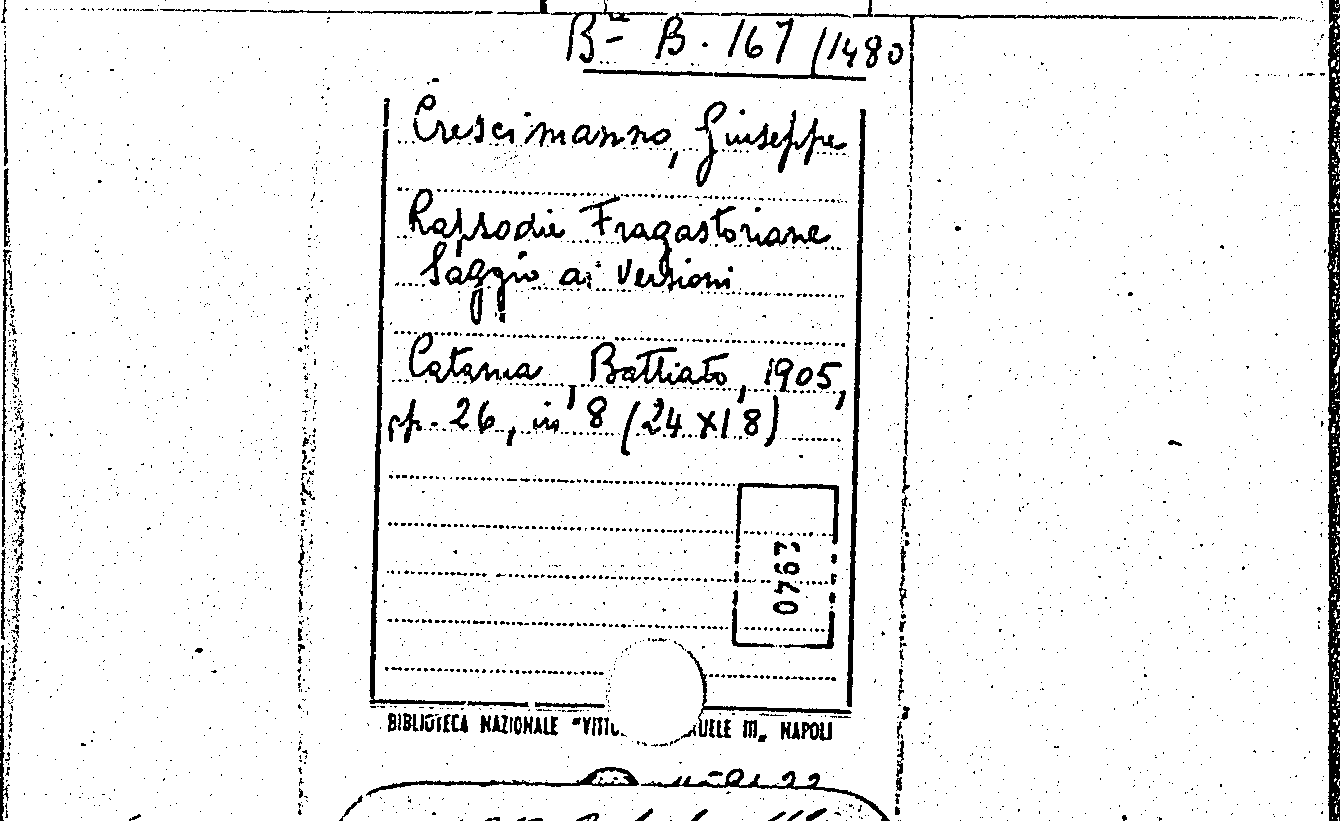 Bᵃ B. 167 /1480
Crescimanno, Giuseppe
Rapsodie Fragastoriane
Saggio di Versioni
Catania, Battiato, 1905,
pp. 26, in 8 (24x18)
0462
BIBLIOTECA NAZIONALE "VITTO UELE III„ NAPOLI